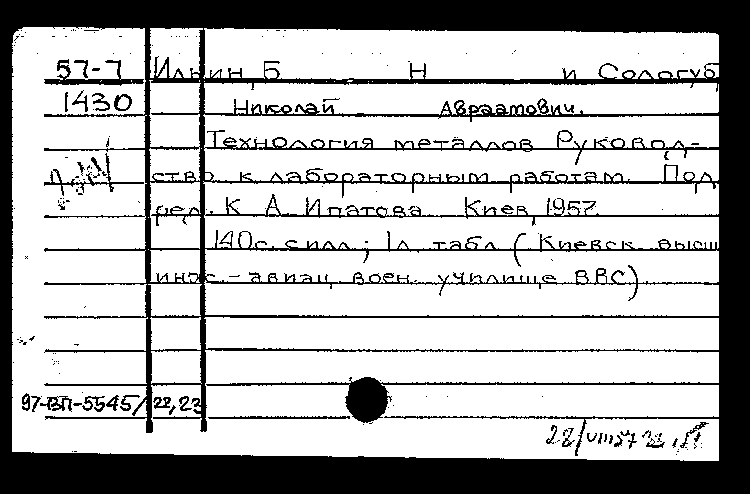 57-7 Ильин, Б Н и Сологуб,
1430 Николай Авраамович.
Технология металлов Руковод-
ство к лабораторным работам Под
ред. К А Ипатова Киев, 1957.
140с. с илл.; 1л. табл (Киевск. высш
инж.-авиац воен. училище ВВС)
97-ВП-5545/ 22,23